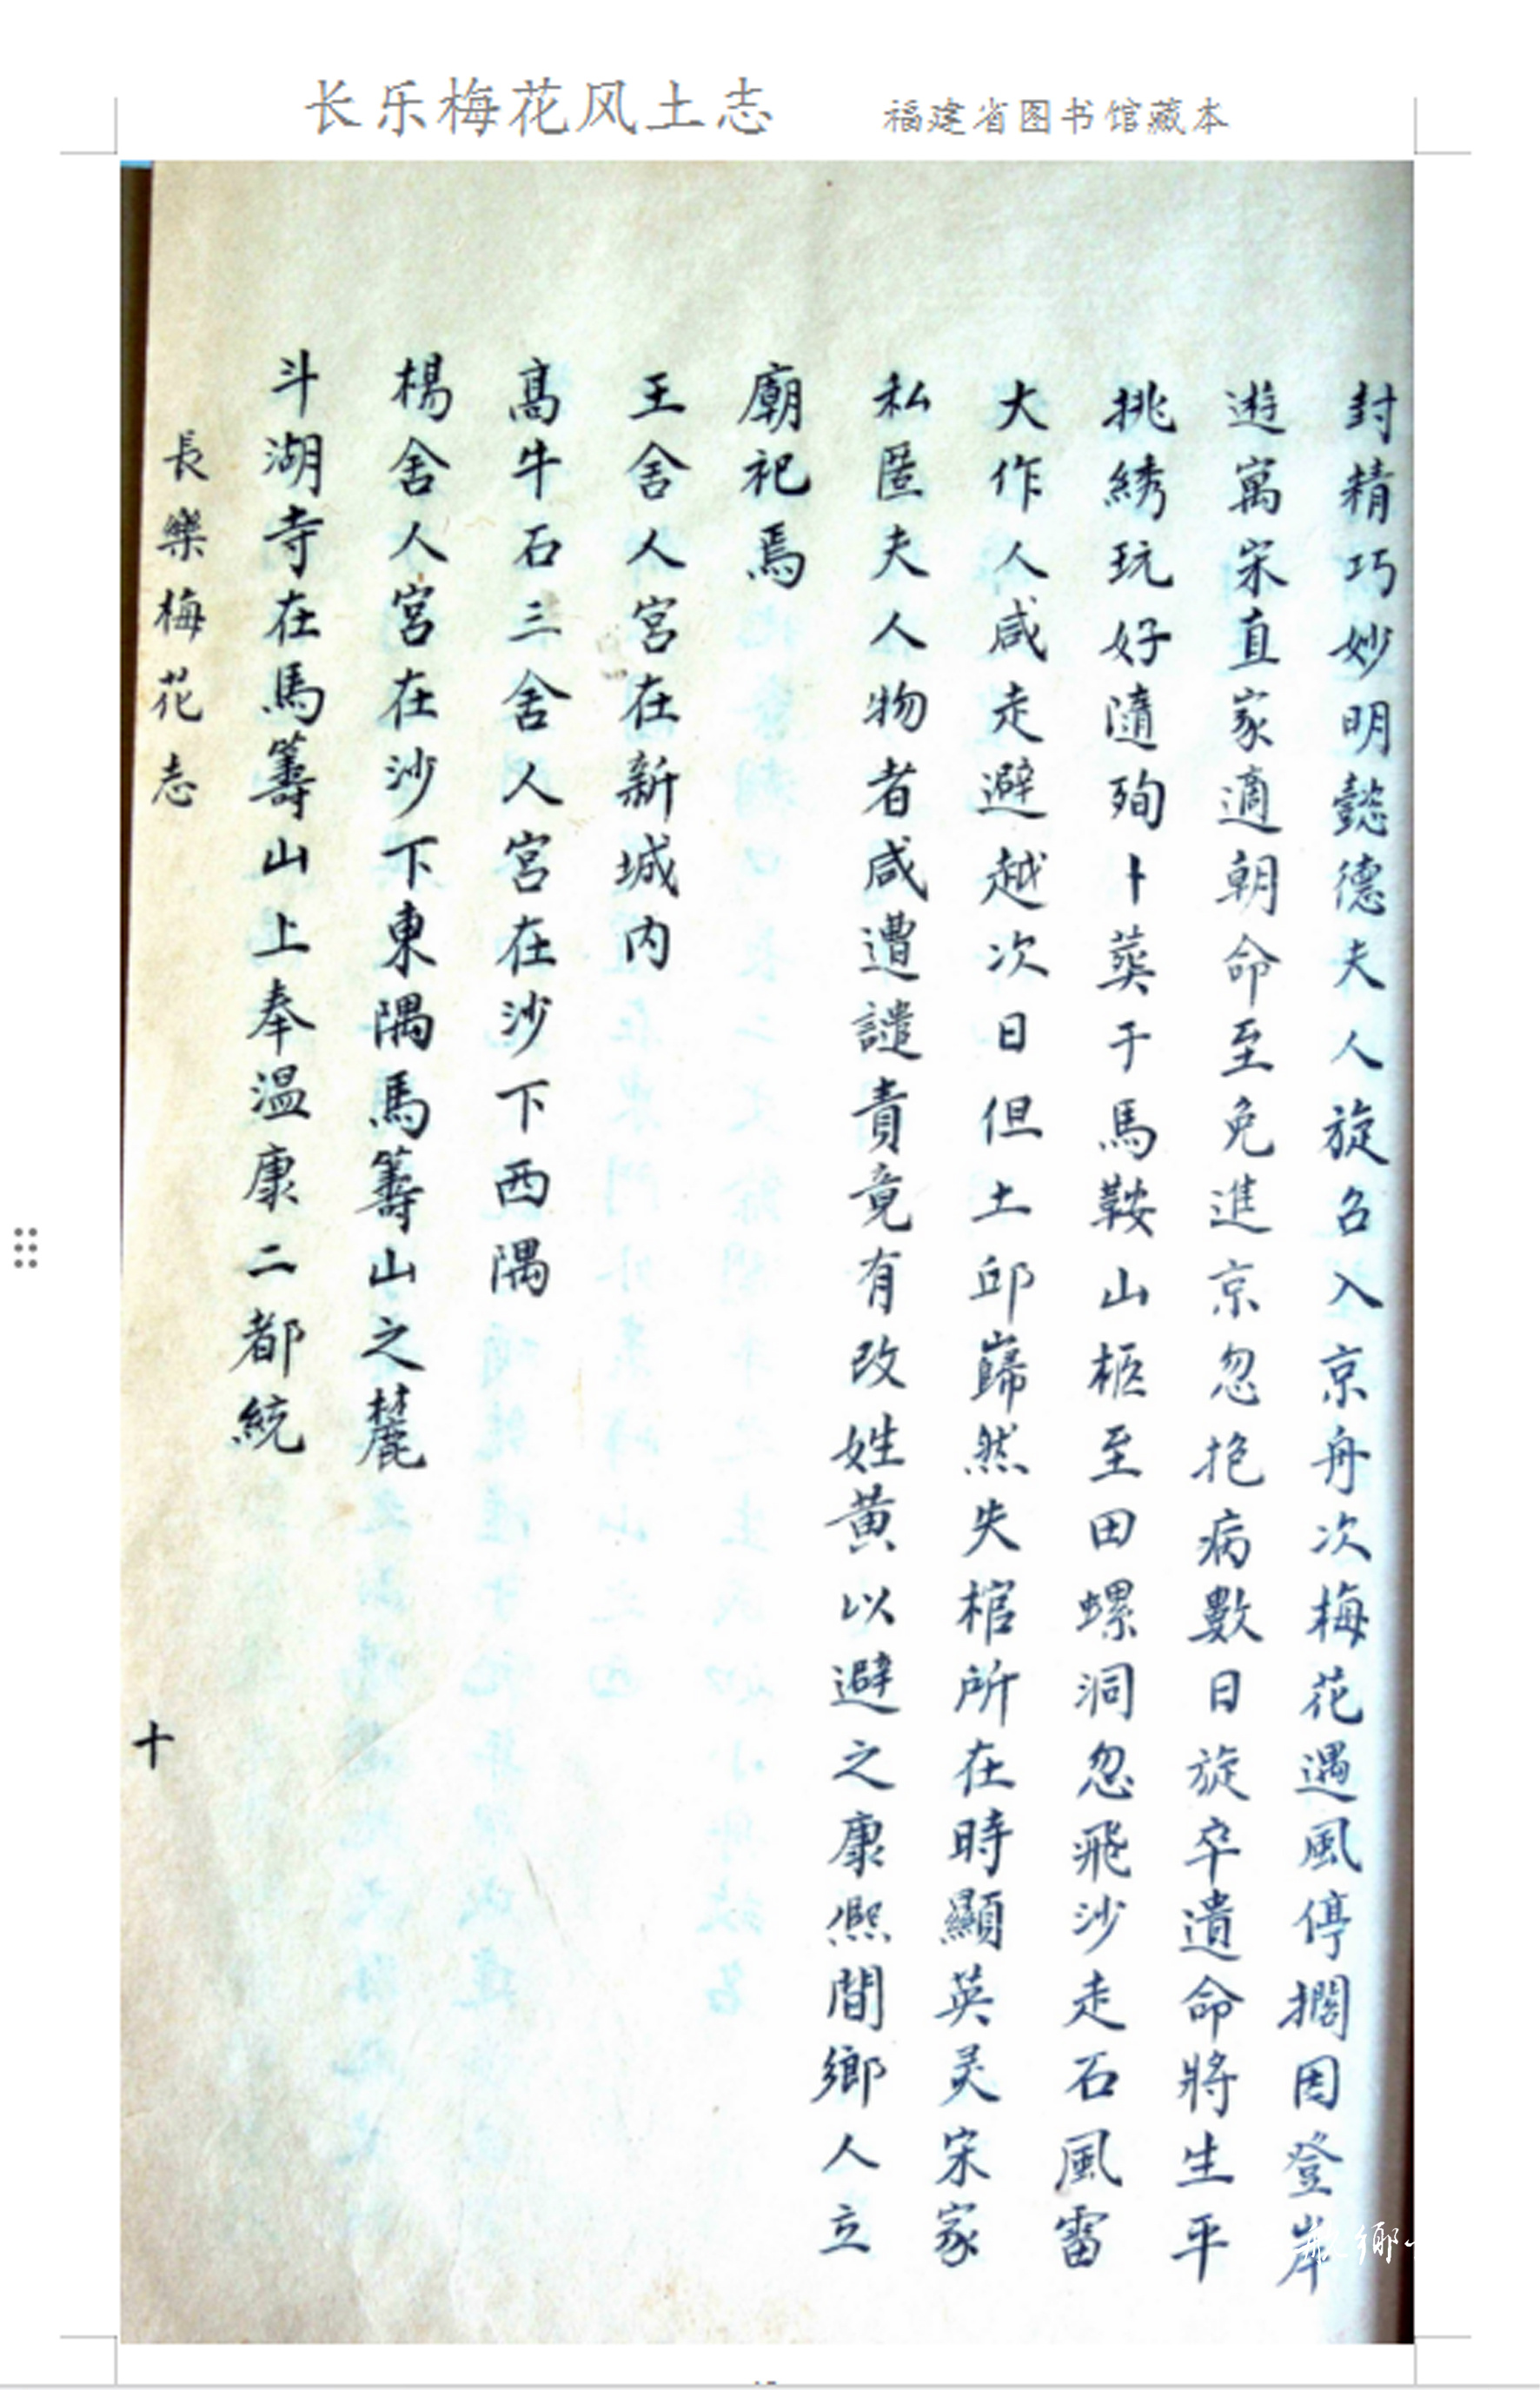 长乐梅花风土志
福建省图书馆藏本
封精巧妙明懿德夫人旋召入京舟次梅花遇風停擱因登岸
遊寓宋直家適朝命至免進京忽抱病數日旋卒遺命將生平
挑綉玩好隨殉卜葬于馬鞍山柩至田螺洞忽飛沙走石風雷
大作人咸走避越次日但土邱巋然失棺所在時顯英灵宋家
私匿夫人物者咸遭譴責竟有改姓黄以避之康熙間鄉人立
廟祀焉
王舍人宮在新城内
高牛石三舍人宮在沙下西隅
楊舍人宮在沙下東隅馬籌山之麓
斗湖寺在馬籌山上奉溫康二都統
長樂梅花志
十